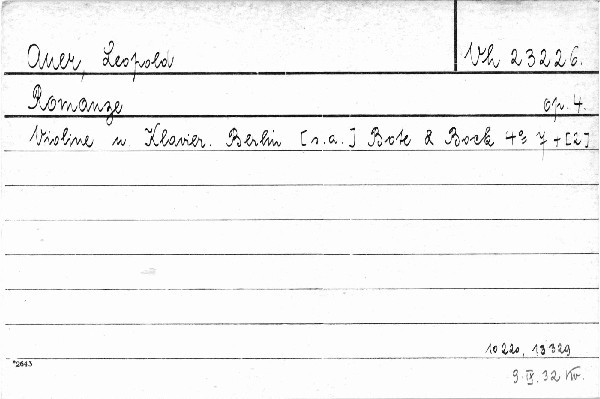 Auer, Leopold Vh 23226.
Romanze op. 4.
Violine u. Klavier. Berlin [s.a.] Bote & Bock 4° 7 + [2]
10220, 13329
*2643
9. IX. 32